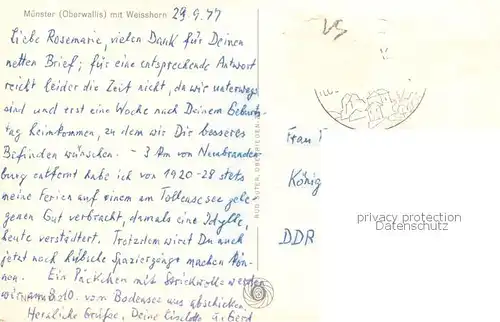 Münster (Oberwallis) mit Weisshorn
29.9.77
Liebe Rosemarie, vielen Dank für Deinen
netten Brief; für eine entsprechende Antwort
reicht leider die Zeit nicht, da wir unterwegs
sind und erst eine Woche nach Deinem Geburts-
tag heimkommen, zu dem wir Dir besseres
Befinden wünschen. - 3 km von Neubranden-
burg entfernt habe ich von 1920-28 stets
meine Ferien auf einem am Tollensesee gele-
genen Gut verbracht, damals eine Idylle,
heute verstädtert. Trotzdem wirst Du auch
jetzt noch hübsche Spaziergänge machen kön-
nen. Ein Päckchen mit Strickwolle werden
wir am 8.10. vom Bodensee aus abschicken.
Herzliche Grüße, Deine Liselotte u. Gerd
RUD. SUTER, OBERRIEDEN
Frau
König
DDR
privacy protection
Datenschutz